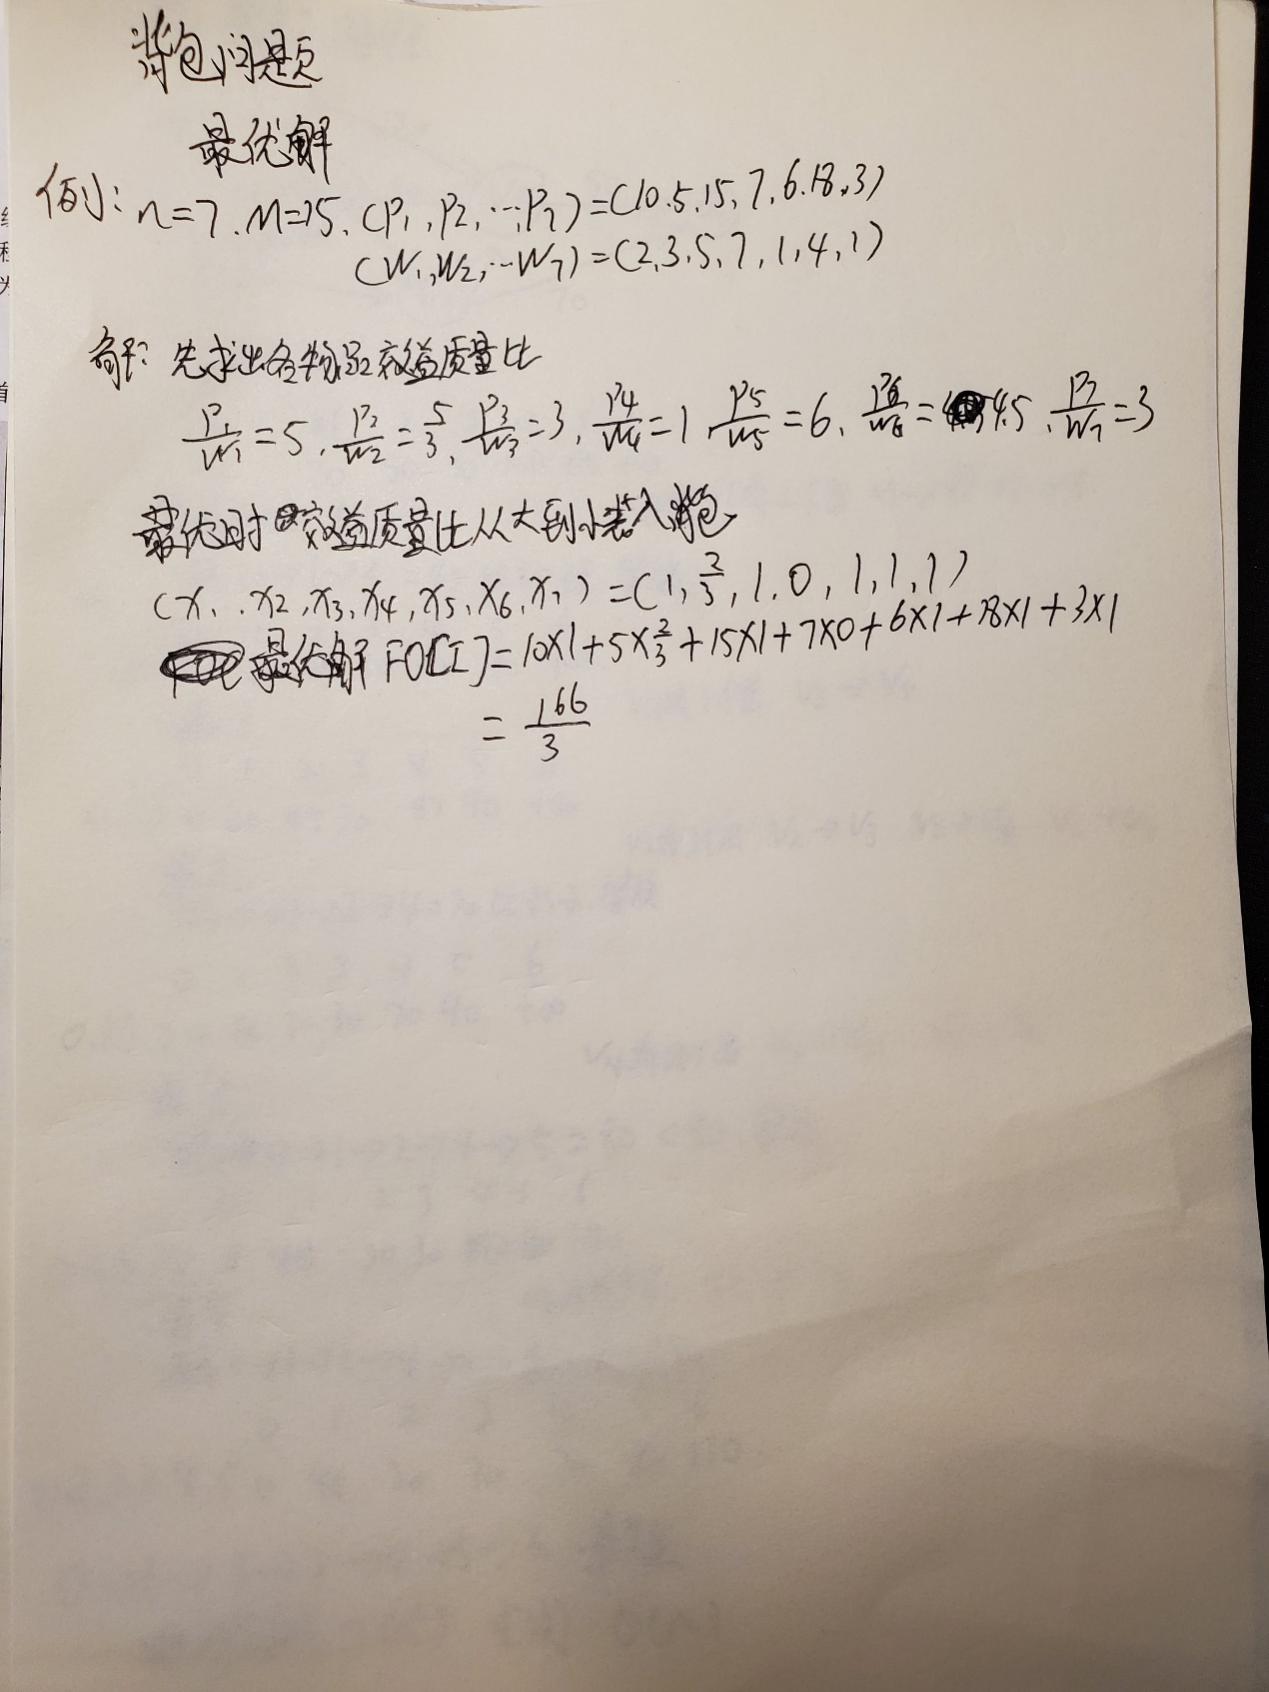 背包问题
最优解
例: n=7. M=15. (P₁,P₂,…,P₇)=(10.5,15,7,6.18,3)
(W₁,W₂,…W₇)=(2,3.5,7,1,4,1)
解: 先求出各物品效益质量比
P₁/W₁=5. P₂/W₂=5/3. P₃/W₃=3, P₄/W₄=1. P₅/W₅=6. P₆/W₆=4.5. P₇/W₇=3
最优时效益质量比从大到小装入背包
(X₁.X₂,X₃,X₄,X₅,X₆,X₇)=(1,2/3,1.0,1,1,1)
最优解 FO[I]=10×1+5×2/3+15×1+7×0+6×1+18×1+3×1
=166/3